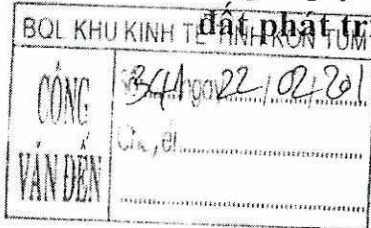 đất phát tr
BQL KHU KINH TẾ TỈNH KON TUM
CÔNG
VĂN ĐẾN
341 ngày 22/02/201